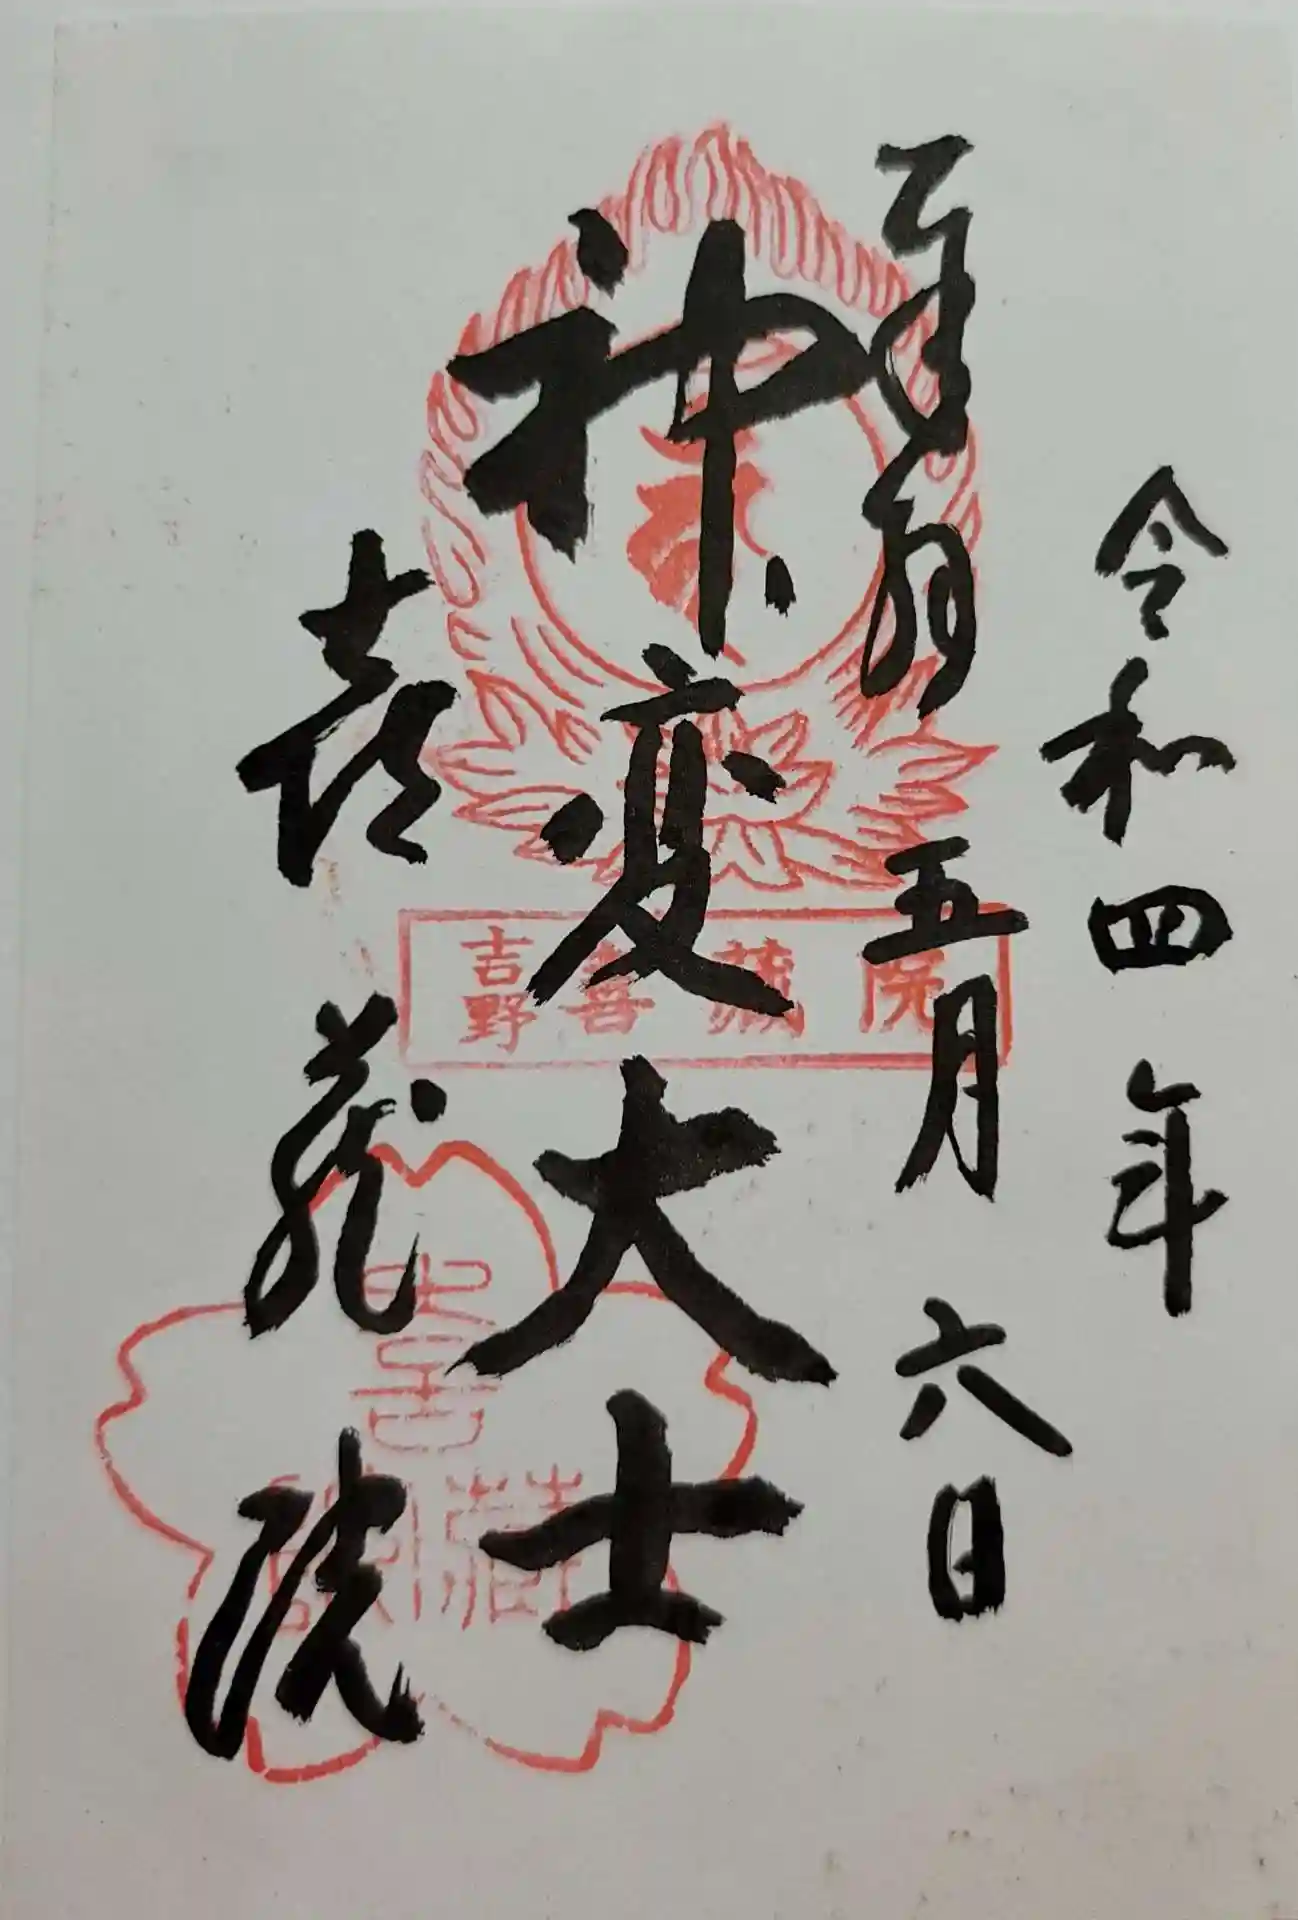 令和四年
五月六日
奉拝
神変大士
喜蔵院
吉野 喜蔵院